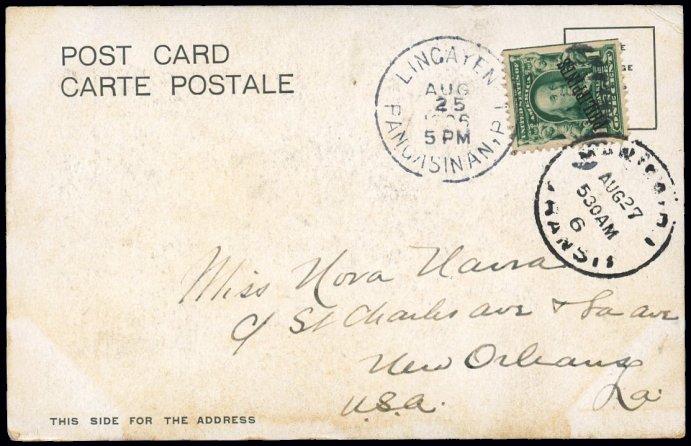 POST CARD
CARTE POSTALE
LINGAYEN
AUG
25
1906
5 PM
PANGASINAN, P.I.
PHILIPPINES
AUG 27
530 AM
6
TRANSIT
Miss Nora
C/ St Charles ave & La ave
New Orleans
La.
U.S.A.
THIS SIDE FOR THE ADDRESS